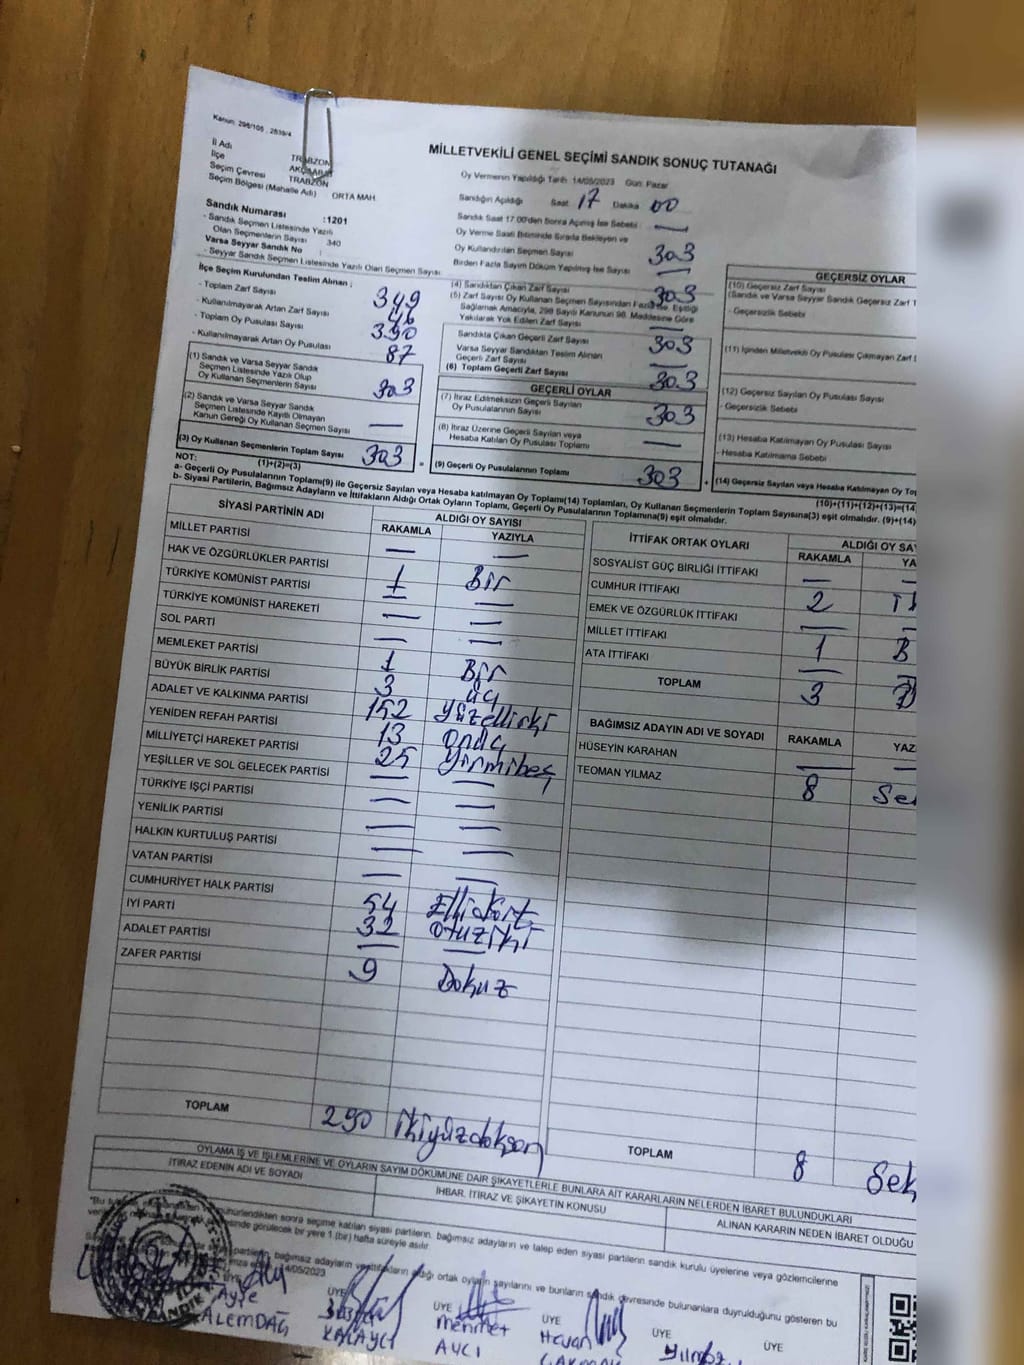 Kanun: 298/105 , 2839/4
MİLLETVEKİLİ GENEL SEÇİMİ SANDIK SONUÇ TUTANAĞI
İl Adı TRABZON
İlçe
Seçim Çevresi TRABZON
Seçim Bölgesi (Mahalle Adı) ORTA MAH.
Sandık Numarası :1201
- Sandık Seçmen Listesinde Yazılı
Olan Seçmenlerin Sayısı 340
Varsa Seyyar Sandık No :
- Seyyar Sandık Seçmen Listesinde Yazılı Olan Seçmen Sayısı
Oy Vermenin Yapıldığı Tarih 14/05/2023 Gün: Pazar
Sandığın Açıldığı Saat 17 Dakika 00
Sandık Saat 17:00'den Sonra Açılmış İse Sebebi : —
Oy Verme Saati Bitiminde Sırada Bekleyen ve
Oy Kullandırılan Seçmen Sayısı 303
Birden Fazla Sayım Döküm Yapılmış İse Sayısı —
İlçe Seçim Kurulundan Teslim Alınan ;
- Toplam Zarf Sayısı 349
- Kullanılmayarak Artan Zarf Sayısı 46
- Toplam Oy Pusulası Sayısı 390
- Kullanılmayarak Artan Oy Pusulası 87
(1) Sandık ve Varsa Seyyar Sandık
Seçmen Listesinde Yazılı Olup
Oy Kullanan Seçmenlerin Sayısı 303
(2) Sandık ve Varsa Seyyar Sandık
Seçmen Listesinde Kayıtlı Olmayan
Kanun Gereği Oy Kullanan Seçmen Sayısı —
(3) Oy Kullanan Seçmenlerin Toplam Sayısı 303
(1)+(2)=(3)
(4) Sandıktan Çıkan Zarf Sayısı 303
(5) Zarf Sayısı Oy Kullanan Seçmen Sayısından Fazla İse, Eşitliği
Sağlamak Amacıyla, 298 Sayılı Kanunun 98. Maddesine Göre
Yakılarak Yok Edilen Zarf Sayısı —
Sandıkta Çıkan Geçerli Zarf Sayısı 303
Varsa Seyyar Sandıktan Teslim Alınan
Geçerli Zarf Sayısı —
(6) Toplam Geçerli Zarf Sayısı 303
GEÇERLİ OYLAR
(7) İtiraz Edilmeksizin Geçerli Sayılan
Oy Pusulalarının Sayısı 303
(8) İtiraz Üzerine Geçerli Sayılan veya
Hesaba Katılan Oy Pusulası Toplamı —
= (9) Geçerli Oy Pusulalarının Toplamı 303 +
GEÇERSİZ OYLAR
(10) Geçersiz Zarf Sayısı
(Sandık ve Varsa Seyyar Sandık Geçersiz Zarf T
- Geçersizlik Sebebi
(11) İçinden Milletvekili Oy Pusulası Çıkmayan Zarf
(12) Geçersiz Sayılan Oy Pusulası Sayısı
- Geçersizlik Sebebi
(13) Hesaba Katılmayan Oy Pusulası Sayısı
- Hesaba Katılmama Sebebi
(14) Geçersiz Sayılan veya Hesaba Katılmayan Oy
(10)+(11)+(12)+(13)=(14
NOT:
a- Geçerli Oy Pusulalarının Toplamı(9) ile Geçersiz Sayılan veya Hesaba katılmayan Oy Toplamı(14) Toplamları, Oy Kullanan Seçmenlerin Toplam Sayısına(3) eşit olmalıdır. (9)+(14)
b- Siyasi Partilerin, Bağımsız Adayların ve İttifakların Aldığı Ortak Oyların Toplamı, Geçerli Oy Pusulalarının Toplamına(9) eşit olmalıdır.
SİYASİ PARTİNİN ADI ALDIĞI OY SAYISI
RAKAMLA YAZIYLA
MİLLET PARTİSİ — —
HAK VE ÖZGÜRLÜKLER PARTİSİ
TÜRKİYE KOMÜNİST PARTİSİ 1 Bir
TÜRKİYE KOMÜNİST HAREKETİ — —
SOL PARTİ — —
MEMLEKET PARTİSİ — —
BÜYÜK BİRLİK PARTİSİ 1 Bir
ADALET VE KALKINMA PARTİSİ 3 üç
YENİDEN REFAH PARTİSİ 152 yüzelliiki
MİLLİYETÇİ HAREKET PARTİSİ 13 onüç
YEŞİLLER VE SOL GELECEK PARTİSİ 25 yirmibeş
TÜRKİYE İŞÇİ PARTİSİ — —
YENİLİK PARTİSİ — —
HALKIN KURTULUŞ PARTİSİ — —
VATAN PARTİSİ — —
CUMHURİYET HALK PARTİSİ — —
İYİ PARTİ 54 Ellidört
ADALET PARTİSİ 32 otuziki
ZAFER PARTİSİ — —
9 Dokuz
TOPLAM 290 ikiyüzdoksan
İTTİFAK ORTAK OYLARI ALDIĞI OY SAY
RAKAMLA YA
SOSYALİST GÜÇ BİRLİĞİ İTTİFAKI — —
CUMHUR İTTİFAKI 2
EMEK VE ÖZGÜRLÜK İTTİFAKI — —
MİLLET İTTİFAKI 1 B
ATA İTTİFAKI —
TOPLAM 3
BAĞIMSIZ ADAYIN ADI VE SOYADI RAKAMLA YAZ
HÜSEYİN KARAHAN — —
TEOMAN YILMAZ 8 Se
TOPLAM 8 Sek
OYLAMA İŞ VE İŞLEMLERİNE VE OYLARIN SAYIM DÖKÜMÜNE DAİR ŞİKAYETLERLE BUNLARA AİT KARARLARIN NELERDEN İBARET BULUNDUKLARI
İTİRAZ EDENİN ADI VE SOYADI İHBAR, İTİRAZ VE ŞİKAYETİN KONUSU ALINAN KARARIN NEDEN İBARET OLDUĞU
mühürlendikten sonra seçime katılan siyasi partilerin, bağımsız adayların ve talep eden siyasi partilerin sandık kurulu üyelerine veya gözlemcilerine
görülecek bir yere 1 (bir) hafta süreyle asılır.
bağımsız adayların ve ittifakların aldığı ortak oyların sayılarını ve bunların sandık çevresinde bulunanlara duyrulduğunu gösteren bu
14/05/2023
ÜYE ÜYE ÜYE ÜYE ÜYE ÜYE
Ayşe ALEMDAĞ
KALAYCI
Mehmet AVCI
Hasan
Yılmaz
SANDIK